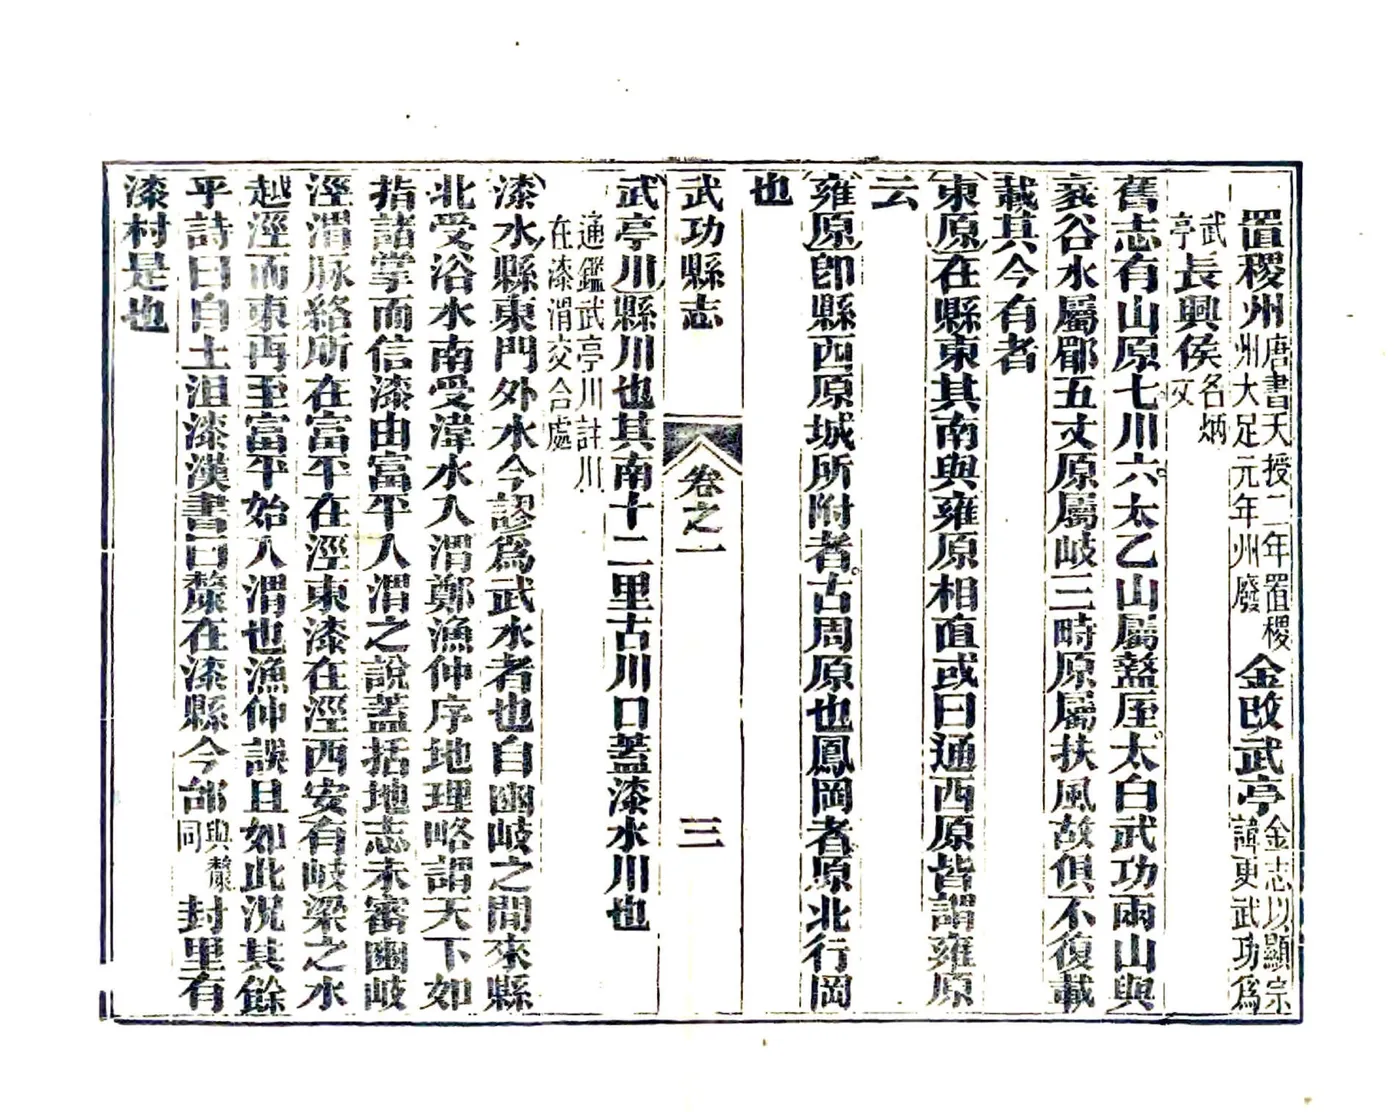 置稷州唐書天授二年置稷州大足元年州廢金改武亭金志以顯宗諱更武功爲
武亭長興侯名炳文
舊志有山原七川六太乙山屬盩厔太白武功兩山與
衺谷水屬郿五丈原屬岐三畤原屬扶風故俱不復載
載其今有者
東原在縣東其南與雍原相直或曰通西原皆謂雍原
云
雍原卽縣西原城所附者古周原也鳳岡者原北行岡
也
武功縣志
卷之一
三
武亭川縣川也其南十二里古川口蓋漆水川也
通鑑武亭川註川在漆渭交合處
漆水縣東門外水今謬爲武水者也自豳岐之間來縣
北受浴水南受湋水入渭鄭漁仲序地理略謂天下如
指諸掌而信漆由富平入渭之說蓋括地志未審豳岐
涇渭脉絡所在富平在涇東漆在涇西安有岐梁之水
越涇而東再至富平始入渭也漁仲誤且如此況其餘
乎詩曰自土沮漆漢書曰漦在漆縣今邰與斄同封里有
漆村是也